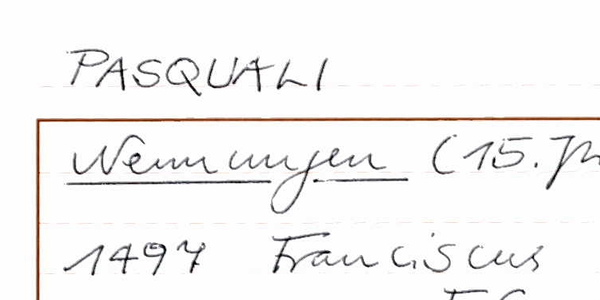 PASQUALI
Nennungen (15. Jh
1497 Franciscus